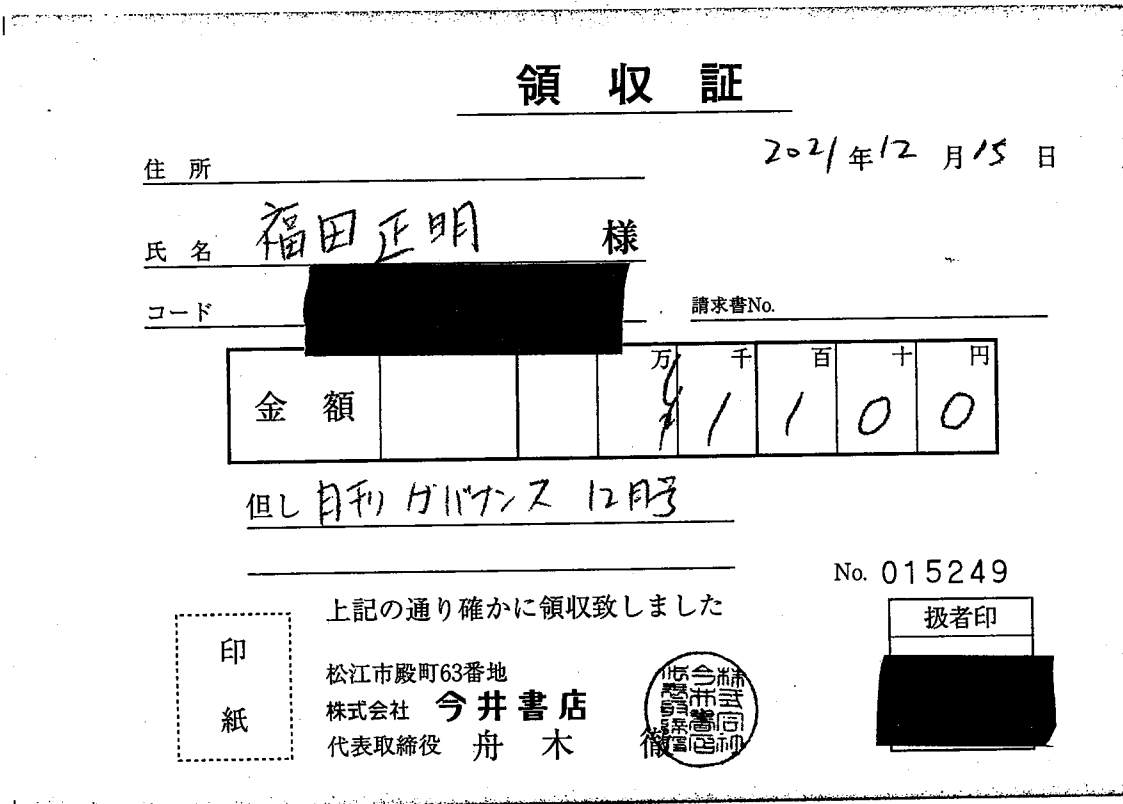 領収証
2021年12月15日
住所
氏名 福田正明 様
コード
請求書No.
金額 万 千 百 十 円
¥1100
但し 月刊 ガバナンス 12月号
No. 015249
上記の通り確かに領収致しました
扱者印
印紙
松江市殿町63番地
株式会社 今井書店
代表取締役 舟木 徹
株式会社
今井書店